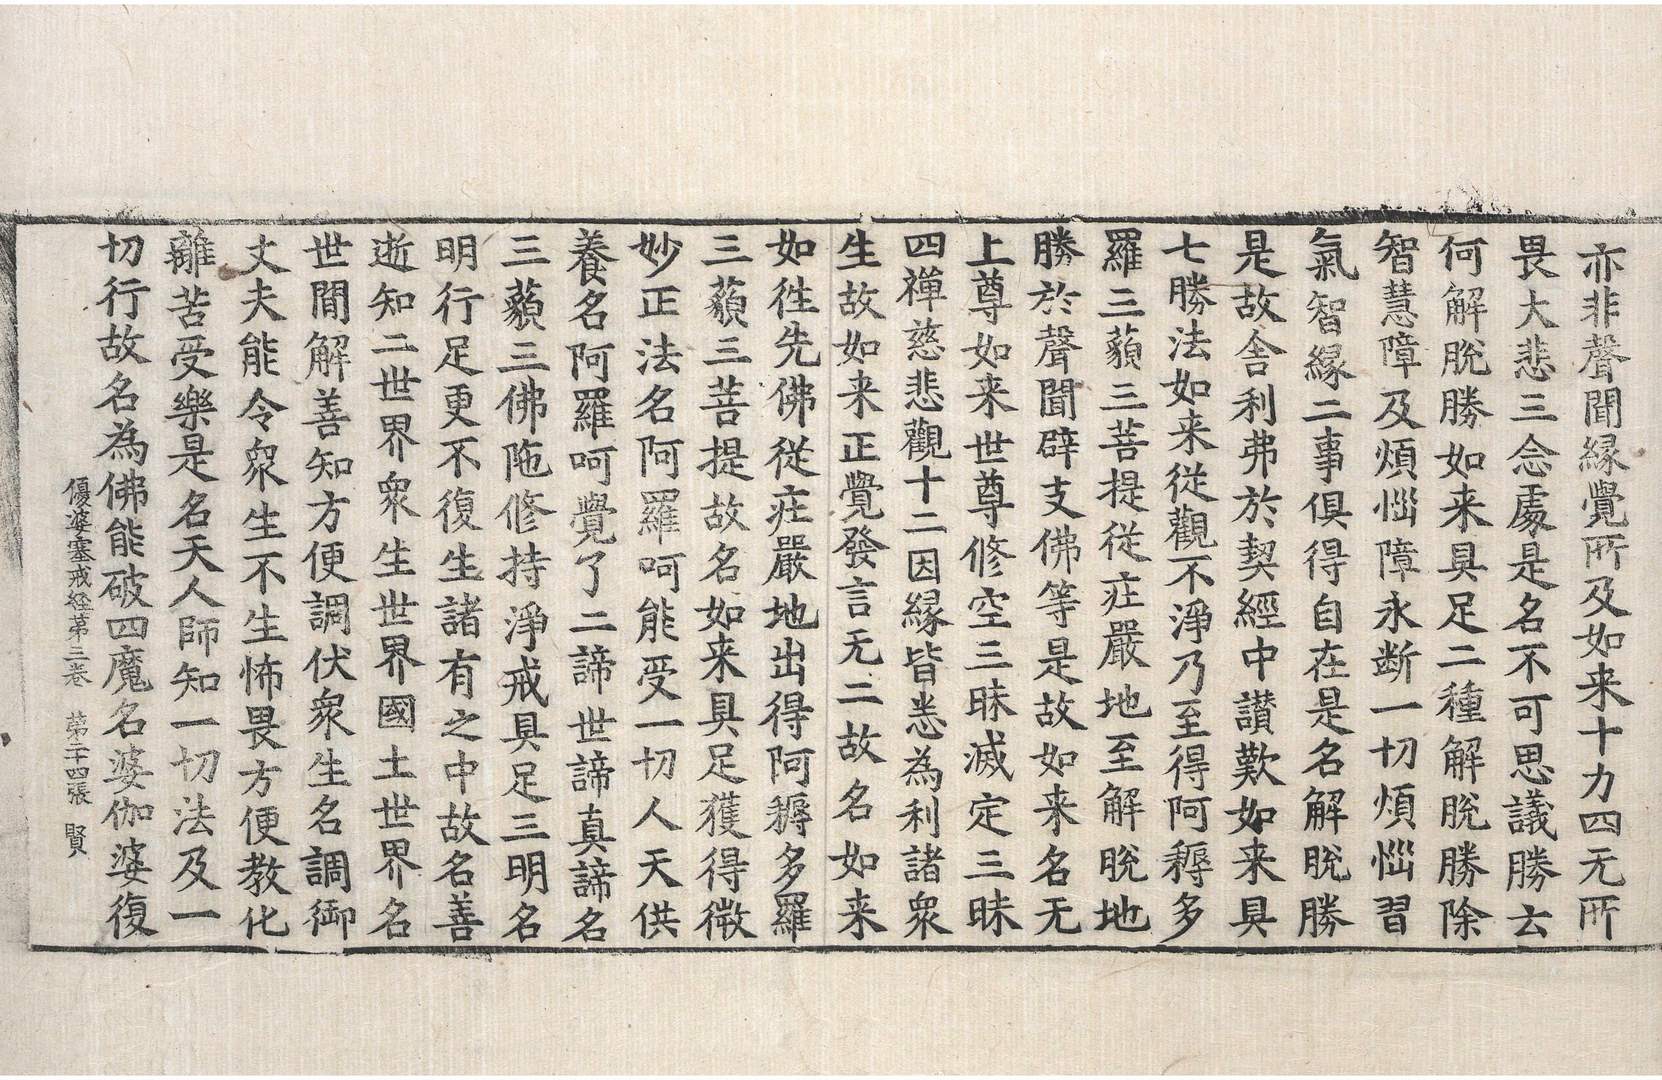 亦非聲聞緣覺所及如来十力四无所
畏大悲三念處是名不可思議勝云
何解脫勝如来具足二種解脫勝除
智慧障及煩惱障永断一切煩惱習
氣智緣二事俱得自在是名解脫勝
是故舍利弗於契經中讃歎如来具
七勝法如来從觀不淨乃至得阿耨多
羅三藐三菩提從荘嚴地至解脫地
勝於聲聞辟支佛等是故如来名无
上尊如来世尊修空三昧滅定三昧
四禪慈悲觀十二因緣皆悉為利諸衆
生故如来正覺發言无二故名如来
如徃先佛從荘嚴地出得阿耨多羅
三藐三菩提故名如来具足獲得微
妙正法名阿羅呵能受一切人天供
養名阿羅呵覺了二諦世諦真諦名
三藐三佛陁修持淨戒具足三明名
明行足更不復生諸有之中故名善
逝知二世界衆生世界國土世界名
世間解善知方便調伏衆生名調御
丈夫能令衆生不生怖畏方便教化
離苦受樂是名天人師知一切法及一
切行故名為佛能破四魔名婆伽婆復
優婆塞戒経第三卷　第二十四張　賢